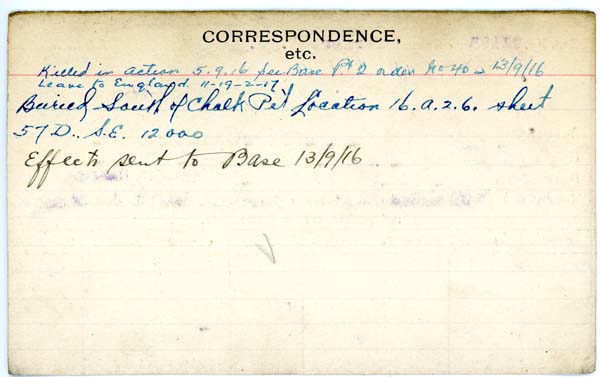 CORRESPONDENCE,
etc.
Killed in action 5.9.16 see Base Pt 2 order No 40 13/9/16
Leave to England. 11-19-2-17
Buried South of Chalk Pit Location 16.a.2.6. sheet
57D.. S.E. 12000
Effects sent to Base 13/9/16